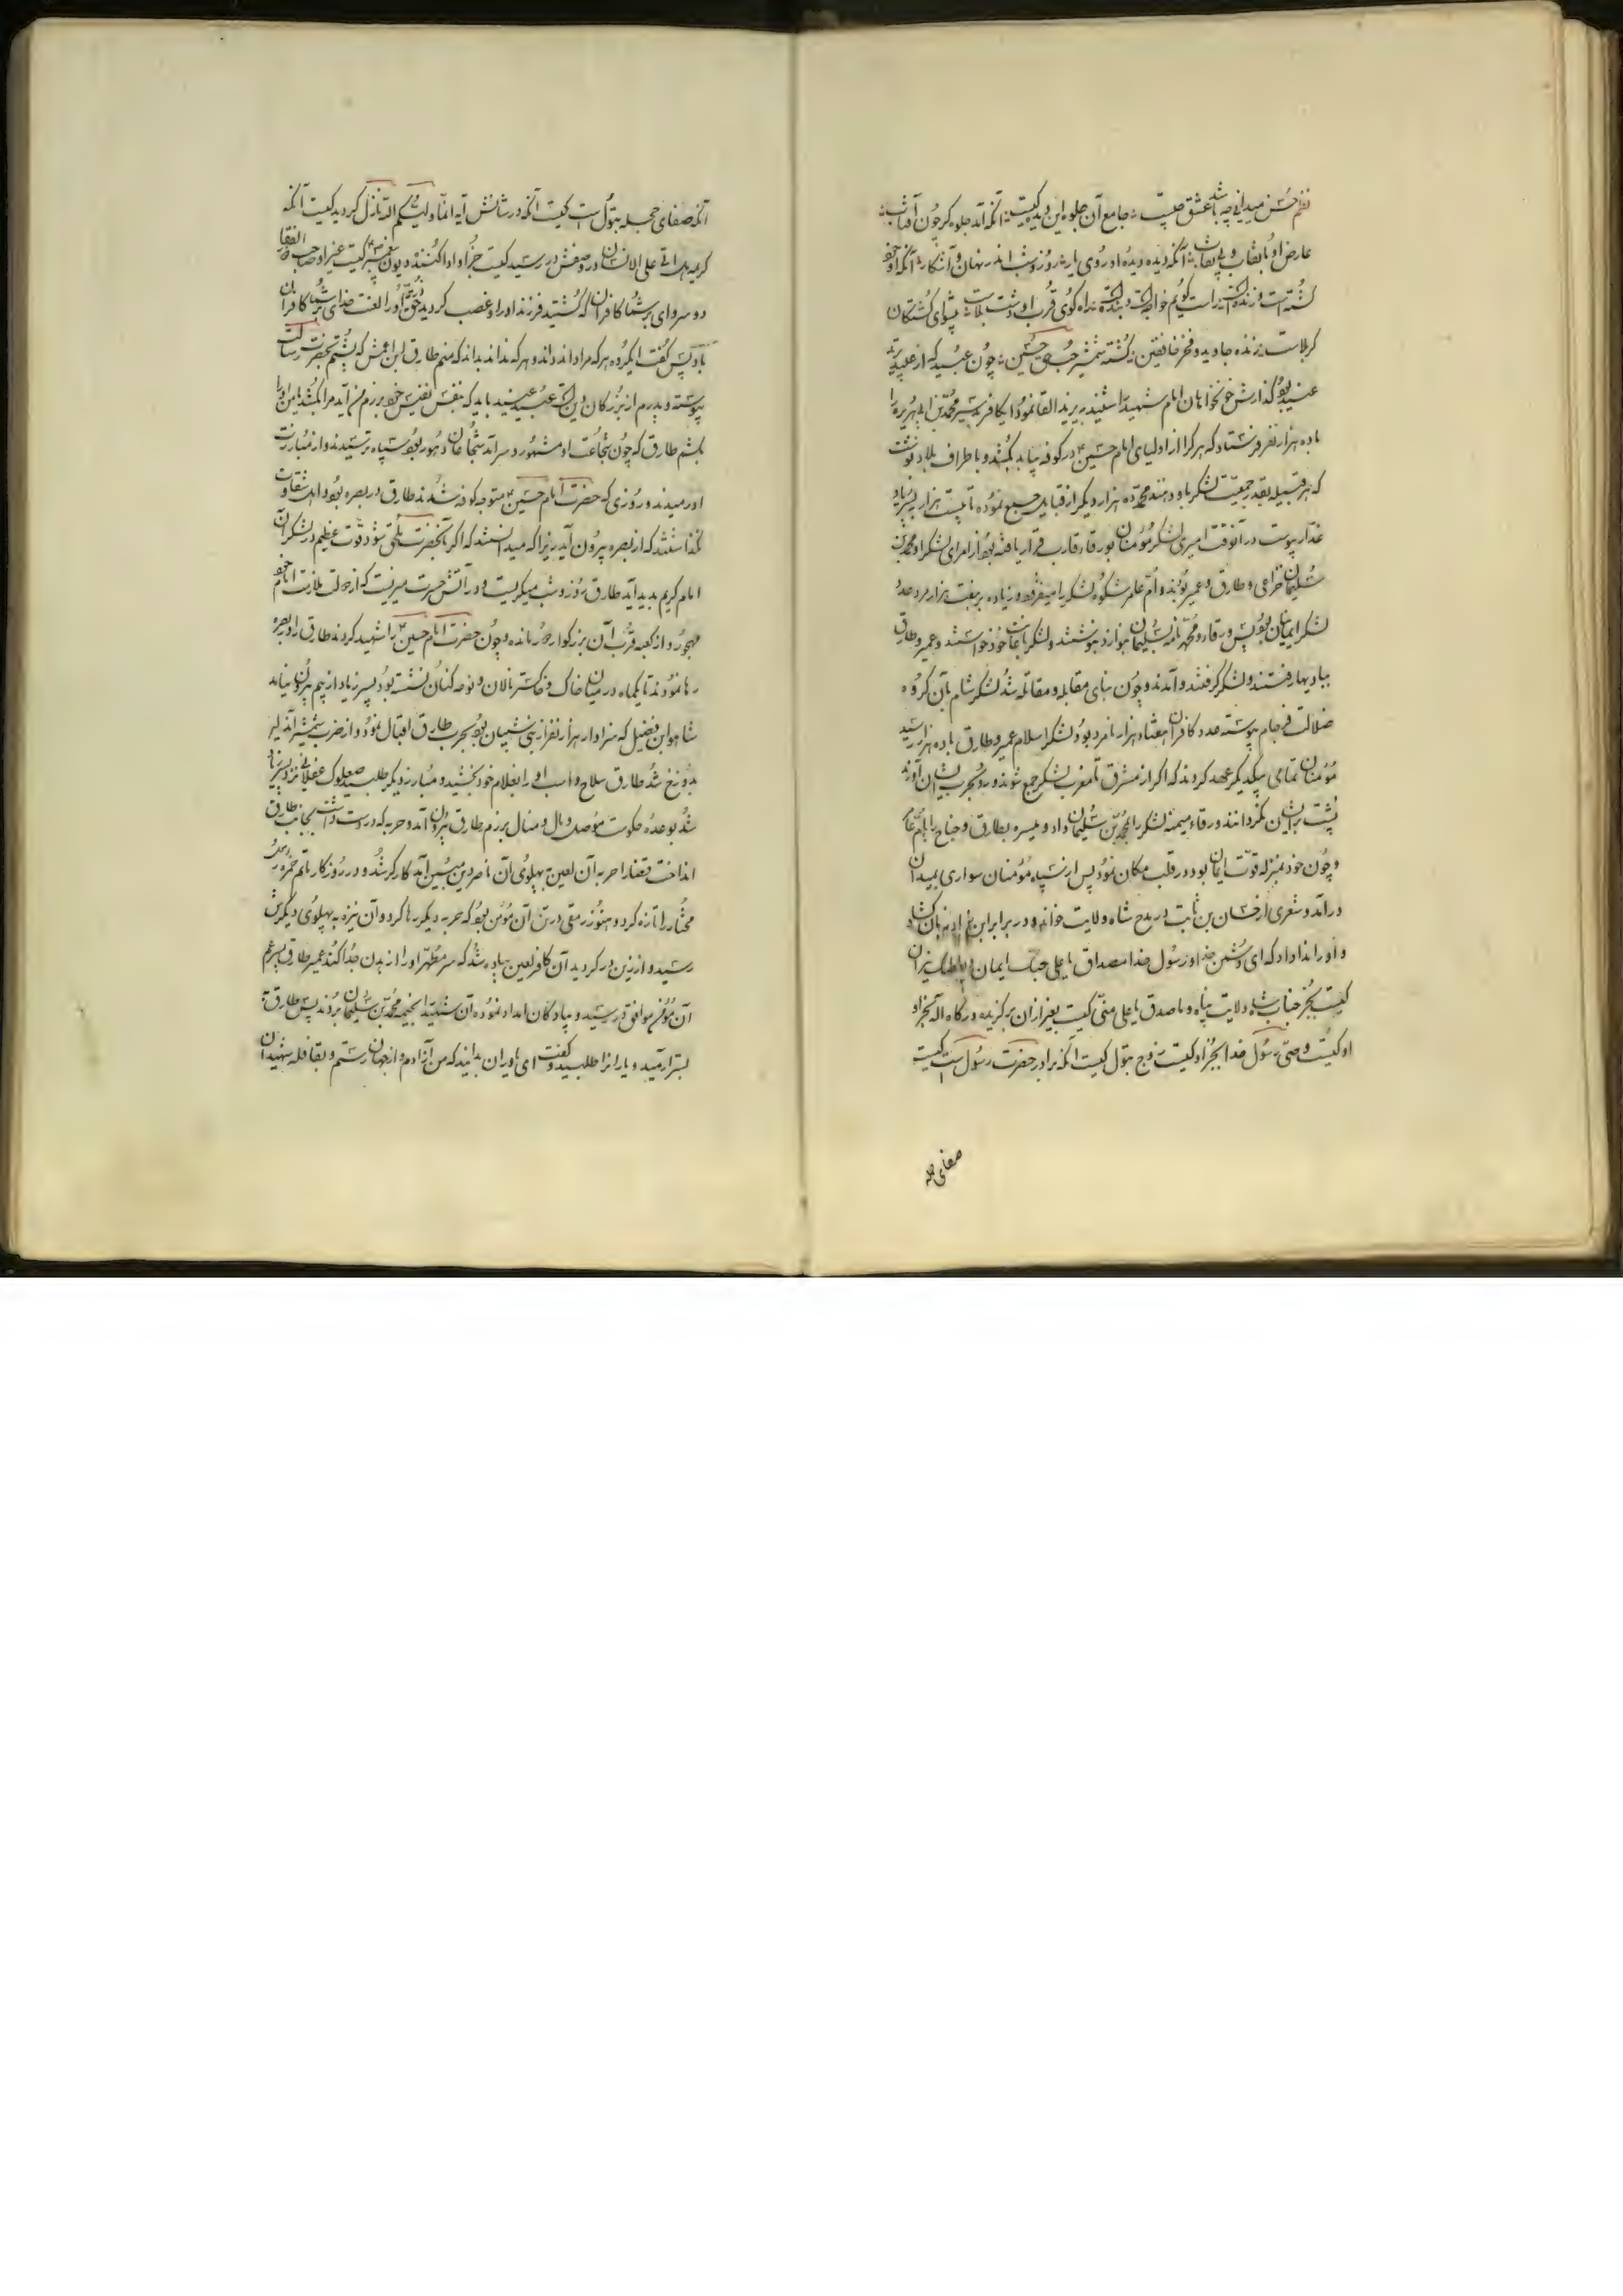 نظم حسن میدانی چه باشد عشق چیست جامع آن جلوه این دیده کیست آنکه آمد جلوه گر چون آفتاب
عارض او با نقاب و بی نقاب آنکه دیده دیده او روی یار روز و شب اندر نهان و آشکار آنکه او خود
کشته است و زنده است راست گویم خواجه است و بنده است راه کوی قرب او دشت بلاست پیشوای کشتگان
کربلاست زنده جاوید و فخر خافقین کشته شمشیر حب حسین چون عبید که از عبید
عنید بود گذارش خونخواهان امام شهید را شنید بر یزید القا نمود آن کافر شریر محمد بن ابی هریره را
با ده هزار نفر فرستاد که هر کرا از اولیای امام حسین در کوفه بیابد بکشند و باطراف بلاد نوشت
که هر قبیله بقدر جمعیت لشکر باو دهند محمد ده هزار دیگر از قبایل جمع نموده تا بیست هزار بپسر زیاد
غدار پیوست در آنوقت امیری لشکر مؤمنان بورقاء قارب قرار یافته بود از امرای لشکر او محمد بن
سلیمان خزاعی و طارق و عمیر بودند و ام عامر شکوه لشکر را میفزود و زیاده بر هفت هزار مرد عدد
لشکر ایمانیان بود پس ورقاء و محمد نامه بسلیمان بوارد بنوشتند و لشکر باعانت خود خواستند و عمیر و طارق
ببادیها رفتند و لشکر گرفتند و آمدند و چون بنای مقابله و مقاتله شد لشکر شام بآن گروه
ضلالت فرجام پیوسته عدد کافران هفتاد هزار نامرد بود و لشکر اسلام عمیر و طارق با ده هزار رسید
مؤمنان تمامی بیکدیگر عهد کردند که اگر از مشرق تا مغرب لشکر جمع شوند و رو بحرب ایشان آورند
پشت بر ایشان نگردانند ورقاء میمنه لشکر را بمحمد بن سلیمان داد و میسره بطارق و جناح را بام عامر
و چون خود بمنزله قوت ایمان بود در قلب مکان نمود پس از سپاه مؤمنان سواری بمیدان
درآمد و شعری از حسان بن ثابت در مدح شاه ولایت خواند و در برابر ابن زیاد زبان گشاد
و او را ندا داد که ای دشمن خدا و رسول خدا مصداق یا علی حبک ایمان
کیست بجز جناب شاه ولایت پناه و ما صدق یا علی منی کیست بغیر از آن برگزیده درگاه اله بجز او
او کیست وصی رسول خدا بجز او کیست زوج بتول کیست آنکه برادر حضرت رسول است کیست
صفای حجله
آنکه صفای حجله بتول است کیست آنکه در شانش آیه انما ولیکم الله نازل گردید کیست آنکه
کریمه هل اتی علی الانسان در وصفش در رسید کیست جز او ادا کننده دیون پیغمبر کیست غیر او صاحب ذوالفقار
دو سر وای بر شما کافران که کشتید فرزند او را و غصب کردید حق ذریه او را لعنت خدای بر شما کافران
باد پس گفت ایگروه هر که مرا داند داند و هر که نداند بداند که منم طارق ابن اعمش که پشتم بحضرت رسالت
پیوسته و پدرم از بزرگان دین است عبید عنید باید که بنفس نفیس خود برزم من آید مرا بکشد یا من او را
بکشم طارق که چون بشجاعت او مشهور و سرآمد شجاعان دهور بود سپاه ترسیدند و از مبارزت
او رمیدند و روزی که حضرت امام حسین متوجه کوفه شدند طارق در بصره بود اهل شقاوت
نگذاشتند که از بصره بیرون آید زیرا که میدانستند که اگر بآنحضرت ملحق شود قوت عظیم در لشکر آن
امام کریم بدید آید طارق روز و شب میگریست و در آتش حسرت میزیست که از دولت ملازمت امام خود
مهجور و از کعبه قرب آن بزرگوار دور مانده و چون حضرت امام حسین را شهید کردند طارق را در بصره
رها نمودند تا یکماه در میان خاک و خاکستر نالان و نوحه کنان نشسته بود پسر زیاد از بیم بیرون نیامد
شاهو ابن فضیل که سردار هزار نفر از بنی شیبان بود بحرب طارق اقبال نمود و از ضرب شمشیر آن دلیر
بدوزخ شد طارق سلاح و اسب او را بغلام خود بخشید و مبارز دیگر طلبید صعلوک عقیلی نزد پسر زیاد
شد بوعده حکومت موصل و مال و منال برزم طارق بیرون آمد و حربه که در دست داشت بجانب طارق
انداخت قضا را حربه آن لعین بپهلوی آن ناصر دین مبین آمد کارگر شد و در روزگار ماتم حمزه و
مختار را تازه کرد و هنوز رمقی در تن آن مؤمن بود که حربه دیگر رها کرد و آن نیزه به پهلوی دیگرش
رسید و از زین در گردید آن کافر لعین پیاده شد که سر مطهر او را از بدن جدا کند عمیر طارق پسر عم
آن مؤمن موافق در رسید و پیادگان امداد نموده آن سید را بخیمه محمد بن سلیمان بردند پس طارق
بستر آرمید و یارانرا طلبید و گفت ای یاوران بدانید که من آزادم و از جهان رستم و بقافله شهیدان